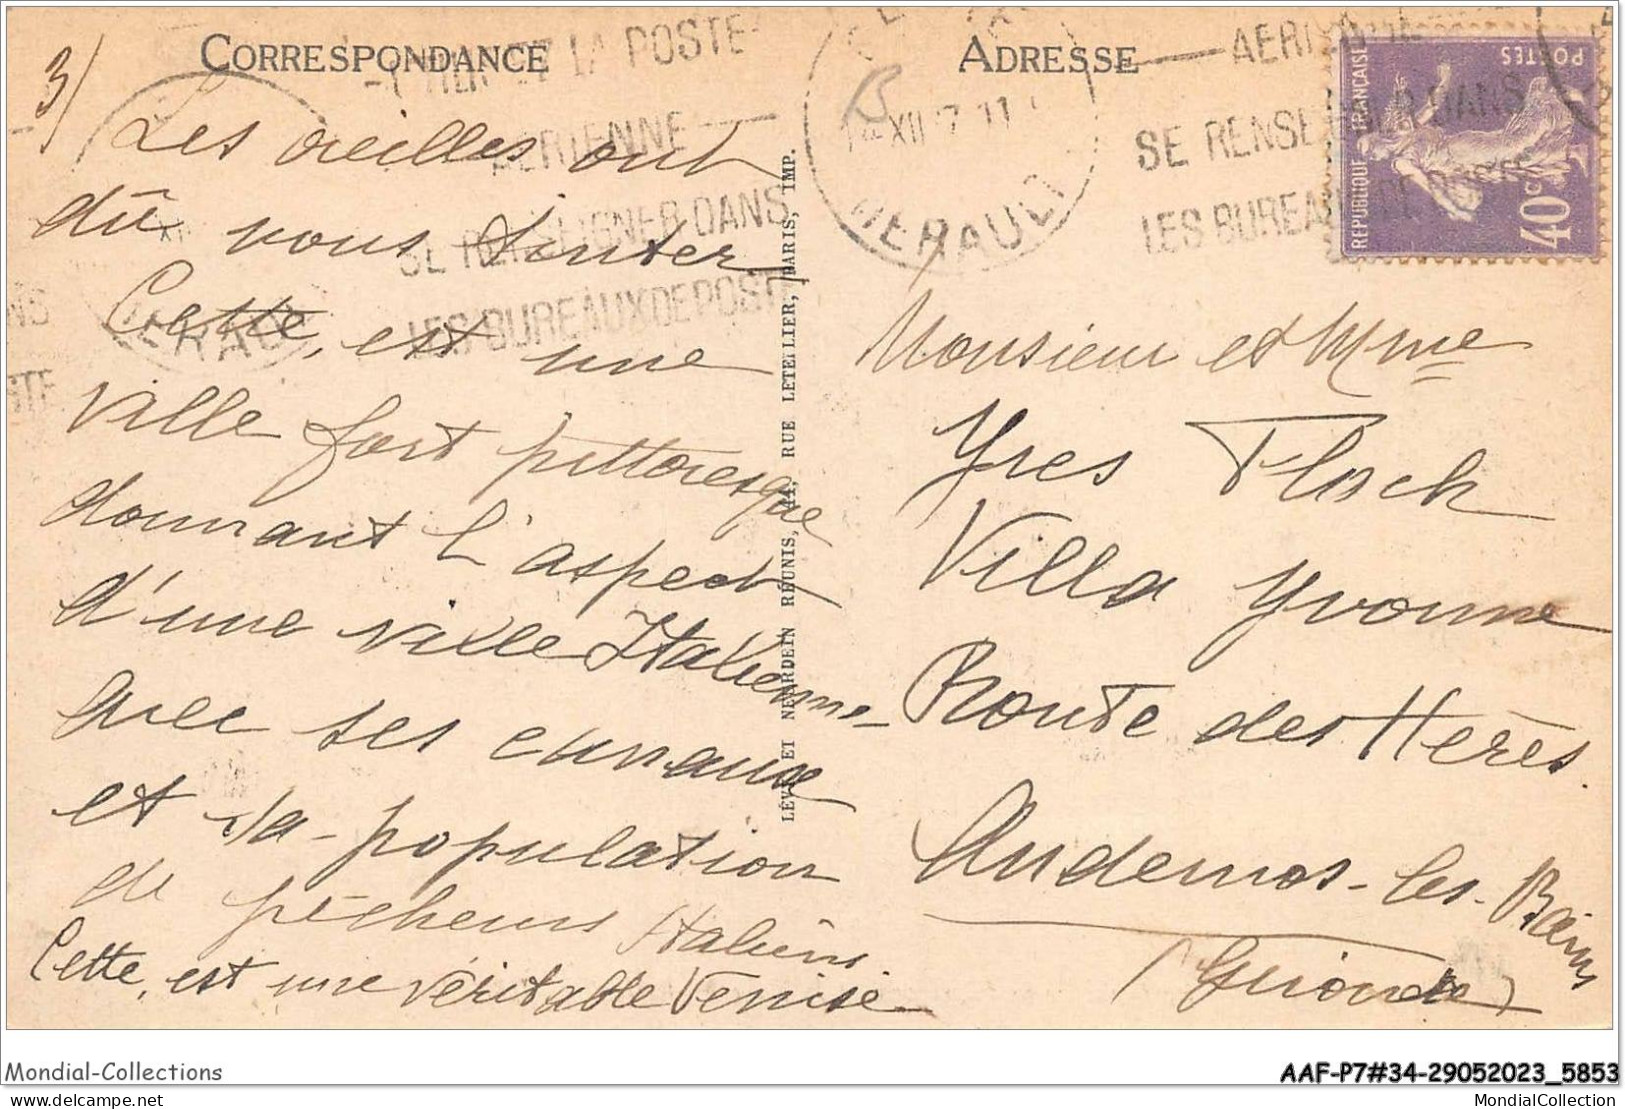 3/
CORRESPONDANCE
ADRESSE
LA POSTE
AERIENNE
SE RENSEIGNER DANS
LES BUREAUX DE POSTE
XII 11
HERAULT
SE RENSEIGNER DANS
LES BUREAUX DE POSTE
HERAULT
REPUBLIQUE FRANÇAISE
POSTES
40c
Les oreilles ont
dû vous tinter
Cette, est une
ville fort pittoresque
donnant l'aspect
d'une ville Italienne
avec ses canaux
et sa population
de pêcheurs Italiens.
Cette, est une véritable Venise
LÉVY ET NEURDEIN RÉUNIS, 44, RUE LETELLIER, PARIS, IMP.
Monsieur et Mme
Yves Floch
Villa Yvonne
Route des Hères.
Andernos-les-Bains
(Gironde)
Mondial-Collections
AAF-P7#34-29052023_5853
delcampe.net
MondialCollection